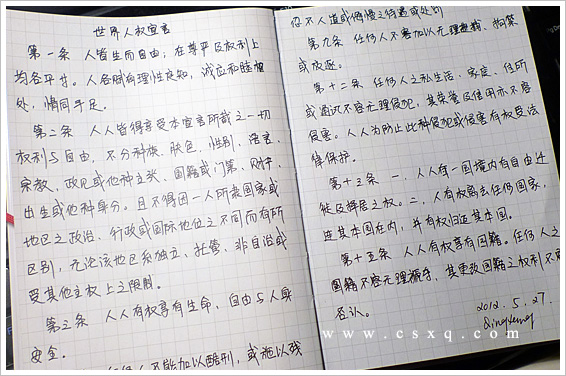 世界人权宣言
第一条 人皆生而自由；在尊严及权利上
均各平等。人各赋有理性良知，诚应和睦相
处，情同手足。
第二条 人人皆得享受本宣言所载之一切
权利与自由，不分种族、肤色、性别、语言、
宗教、政见或他种主张、国籍或门第、财产、
出生或他种身分。且不得因一人所隶国家或
地区之政治、行政或国际地位之不同而有所
区别，无论该地区系独立、托管、非自治或
受其他主权上之限制。
第三条 人人有权享有生命、自由与人身
安全。
任何人不能加以酷刑，或施以残
忍不人道或侮慢之待遇或处罚
第九条 任何人不容加以无理逮捕、拘禁
或放逐。
第十二条 任何人之私生活、家庭、住所
或通讯不容无理侵犯，其荣誉及信用亦不容
侵害。人人为防止此种侵犯或侵害有权受法
律保护。
第十三条 一、人人有一国境内有自由迁
徙及择居之权。二、人有权离去任何国家，
连其本国在内，并有权归返其本国。
第十五条 人人有权享有国籍。任何人之
国籍不容无理褫夺，其更改国籍之权利不容
否认。
2012.5.27.
www.csxq.com